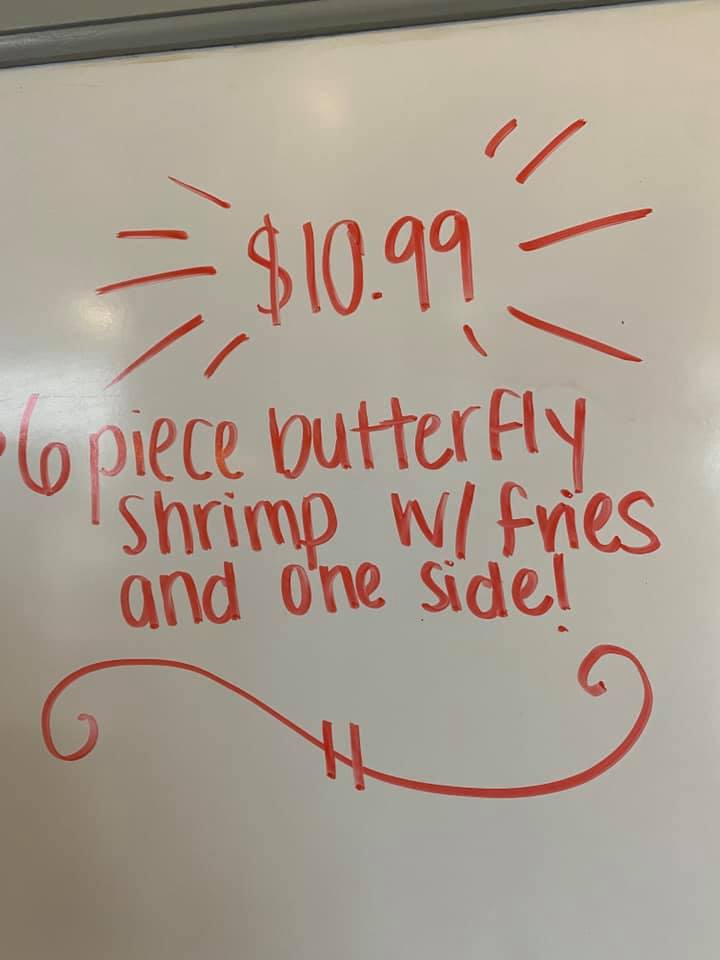 $10.99
6 piece butterfly
shrimp w/ fries
and one side!